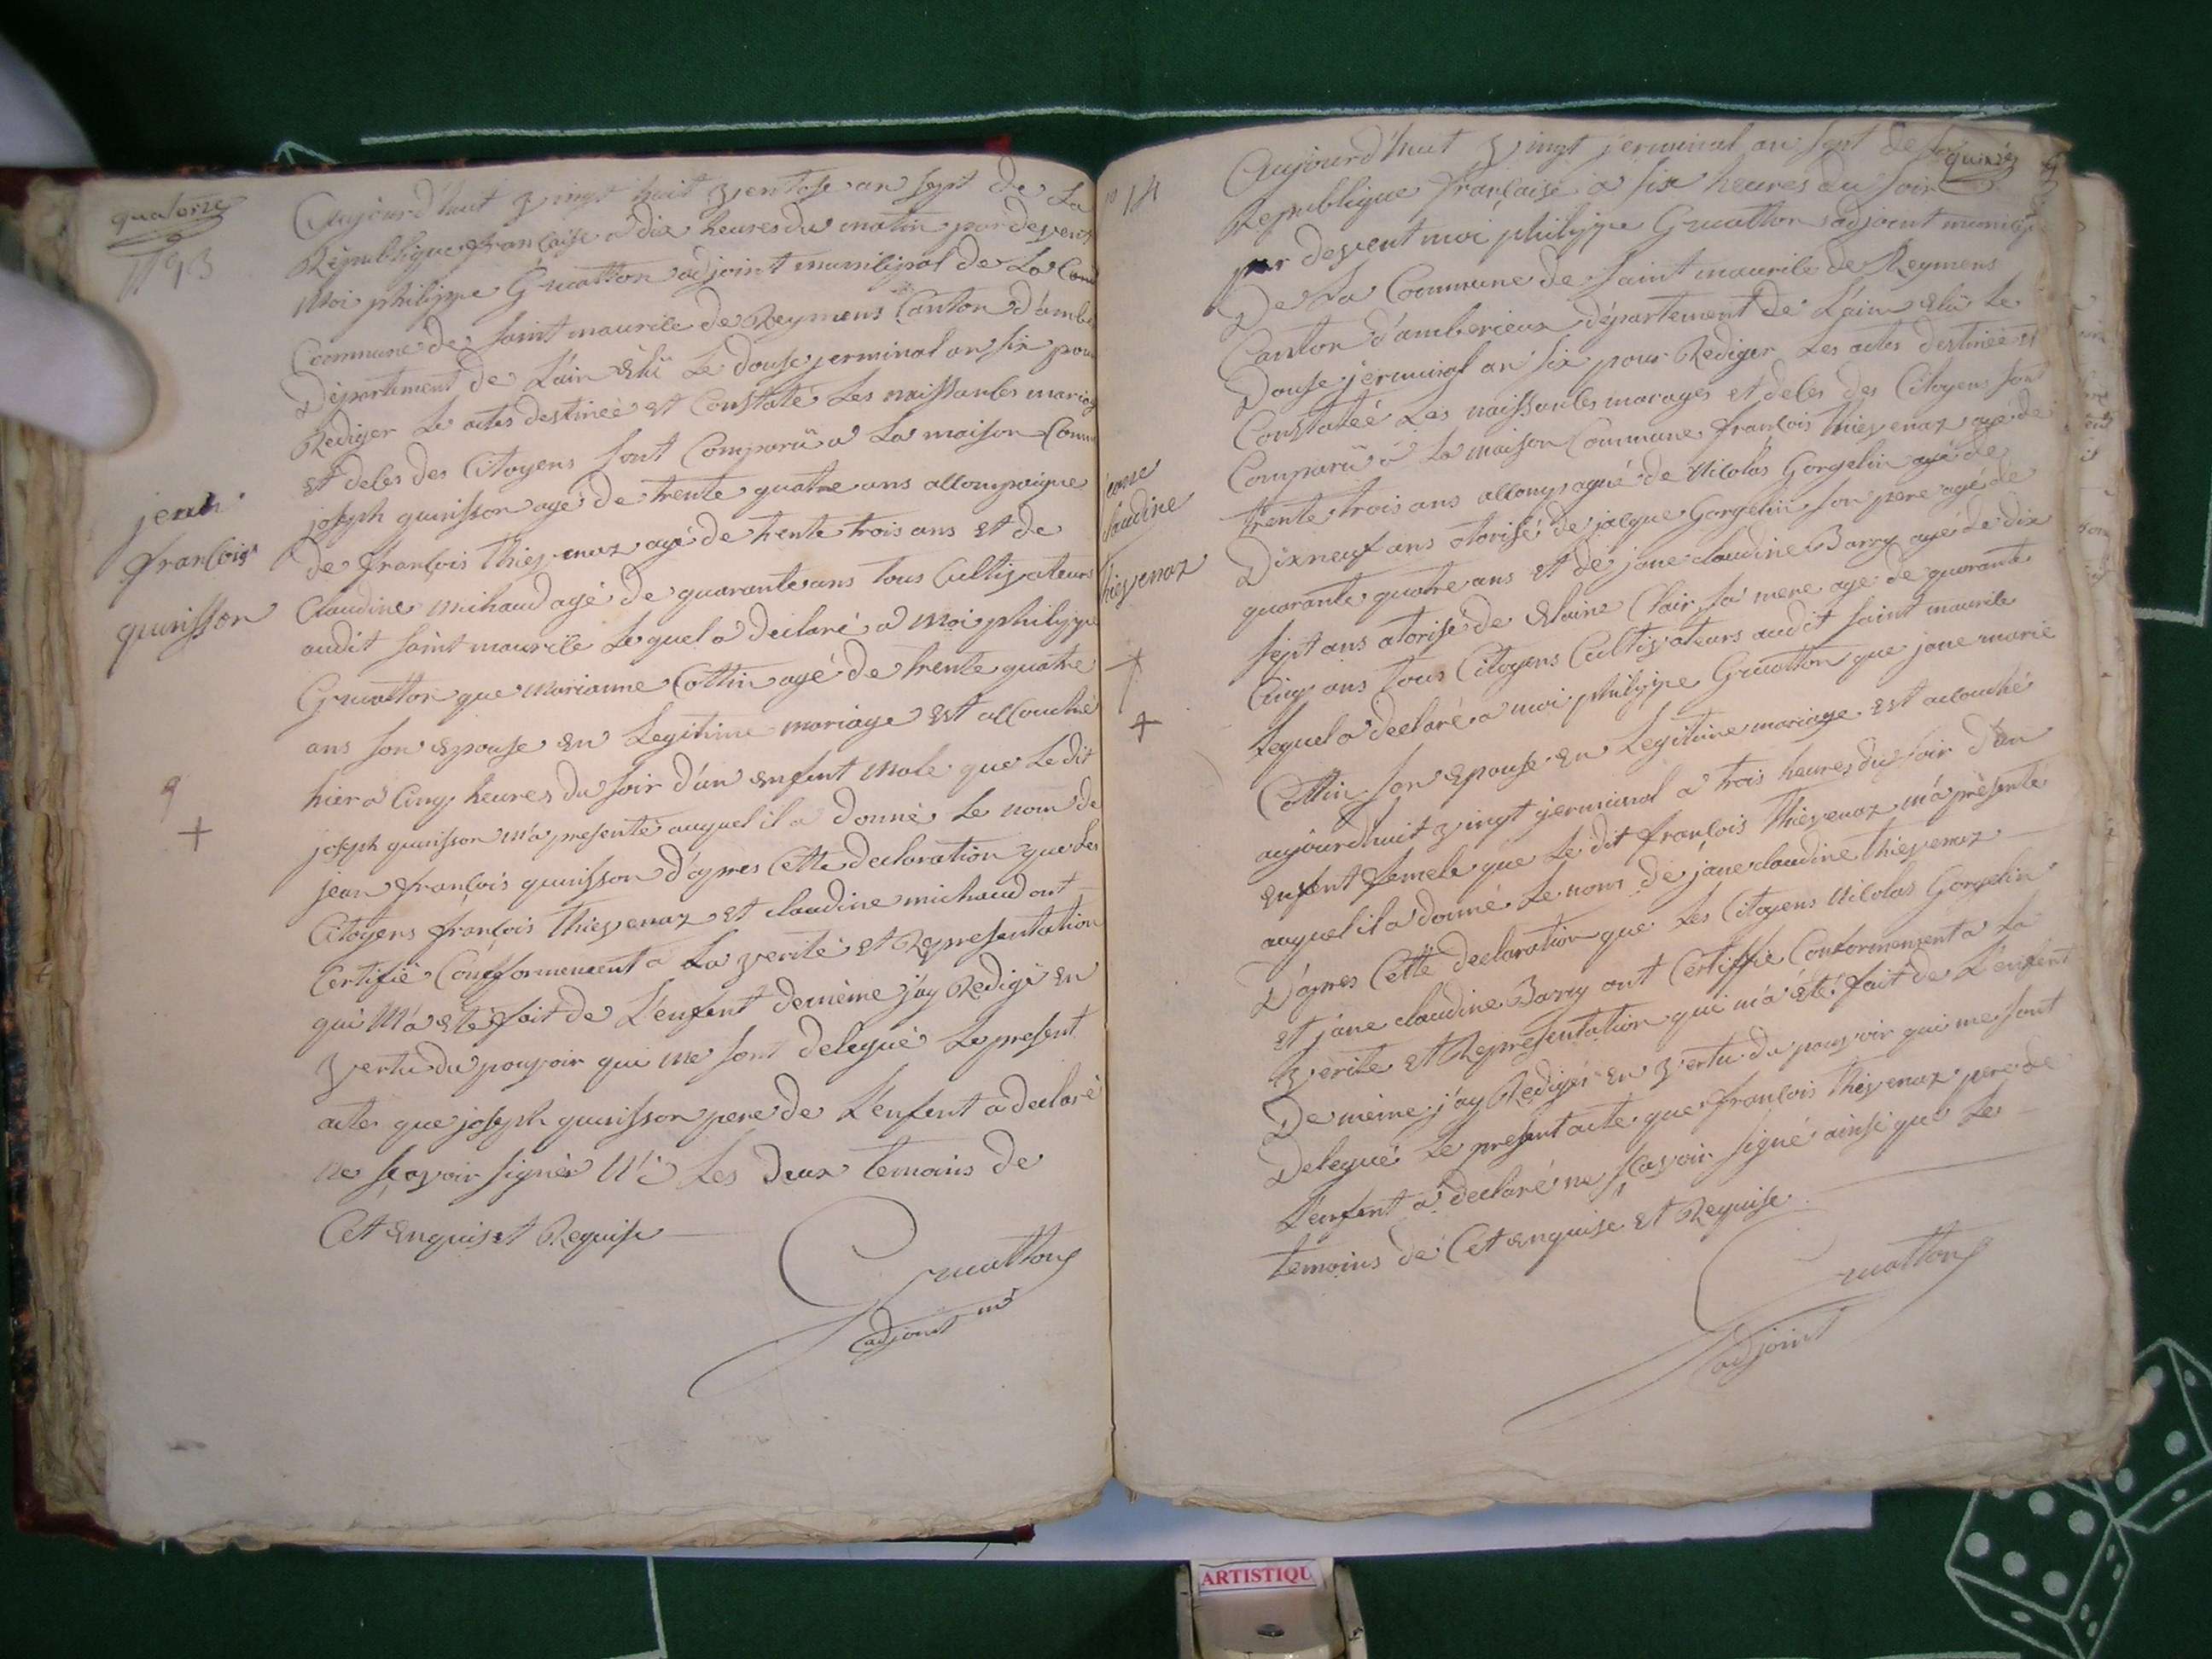 quatorze
1793
Aujourd'huit vingt huit ventose an sept de La
Republique française a dix heures du matin par devent
Moi philippe Gruatton adjoint municipal de La Com
Commune de saint maurile de Reymens Canton d'ambe
Departement de L'ain Elü Le douse jerminal an six pour
Rediger Le actes destinéé et Constaté Les naissanles mariag
et deles des Citoyens sont Comparü a La maison Comm
jean
françois
gunisson
joseph gunisson agé de trente quatre ans allompaigne
de françois Thievenaz agé de trente trois ans et de
Claudine Michaud agé de quarante ans tous Cultivateurs
audit saint maurile Lequel a declaré a Moi philippe
Gruatton que Marianne Cottin agé de trente quatre
ans son Epouse en Legitime mariage est allouché
hier a Cinq heures du soir d'un enfent Male que Ledit
joseph gunisson m'a presenté auquel il a donné Le nom de
jean françois gunisson d'apres Cette declaration que Les
Citoyens françois Thievenaz et claudine michaud ont
Certifié Confformement a La verité et Representation
qui M'a eté fait de L'enfent de même j'ay Redigé en
vertu du pouvoir qui me sont delegué Le present
acte que joseph gunisson pere de L'enfent a declaré
ne sçavoir signér Ni Les deux temoins de
Cet enquis et Requise
Gruatton
adjoint ml
14
quinze
Aujourd'huit vingt jerminal an sept de
Republique française a six heures du soir
par devent moi philippe Gruatton adjoint municip
De La Commune de saint maurile de Reymens
Canton d'amberieux departement de L'ain Elü Le
Douse jerminal an six pour Rediger Les actes destinéé et
Constatéé Les naissanles marages et deles des Citoyens son
Comparü a La maison Commune françois Thievenaz agé de
janne
claudine
Thievenaz
trente trois ans allompagné de Nicolas Gorgelin agé de
Dixneuf ans otorisé de jalque Gorgelin son pere agé de
quarante quatre ans et de jane claudine Barry agé de dix
sept ans atorisé de Elaine Clair sa mere agé de quarante
Cinq ans tous Citoyens Cultivateurs audit saint maurile
Lequel a declaré a moi philippe Gruatton que jane marie
Cottin son Epouse en Legitime mariage est alouché
aujourdhuit vingt jerminal a trois heures du soir d'un
enfent femele que Le dit françois Thievenaz m'a présenté
auquel il a donné Le nom de jane claudine Thievenaz
D'apres Cette declaration que Les Citoyens Nicolas Gorgelin
et jane claudine Barry ont Certiffié Conformement a La
verite et Representation qui m'a été fait de L'enfent
De même j'ay Redigér en vertu du pouvoir qui me sont
Delegué Le present acte que françois Thievenaz pere de
L'enfent a declaré ne sçavoir signé ainsi que Les
temoins de Cet enquise et Requise
Gruatton
adjoint
ARTISTIQU